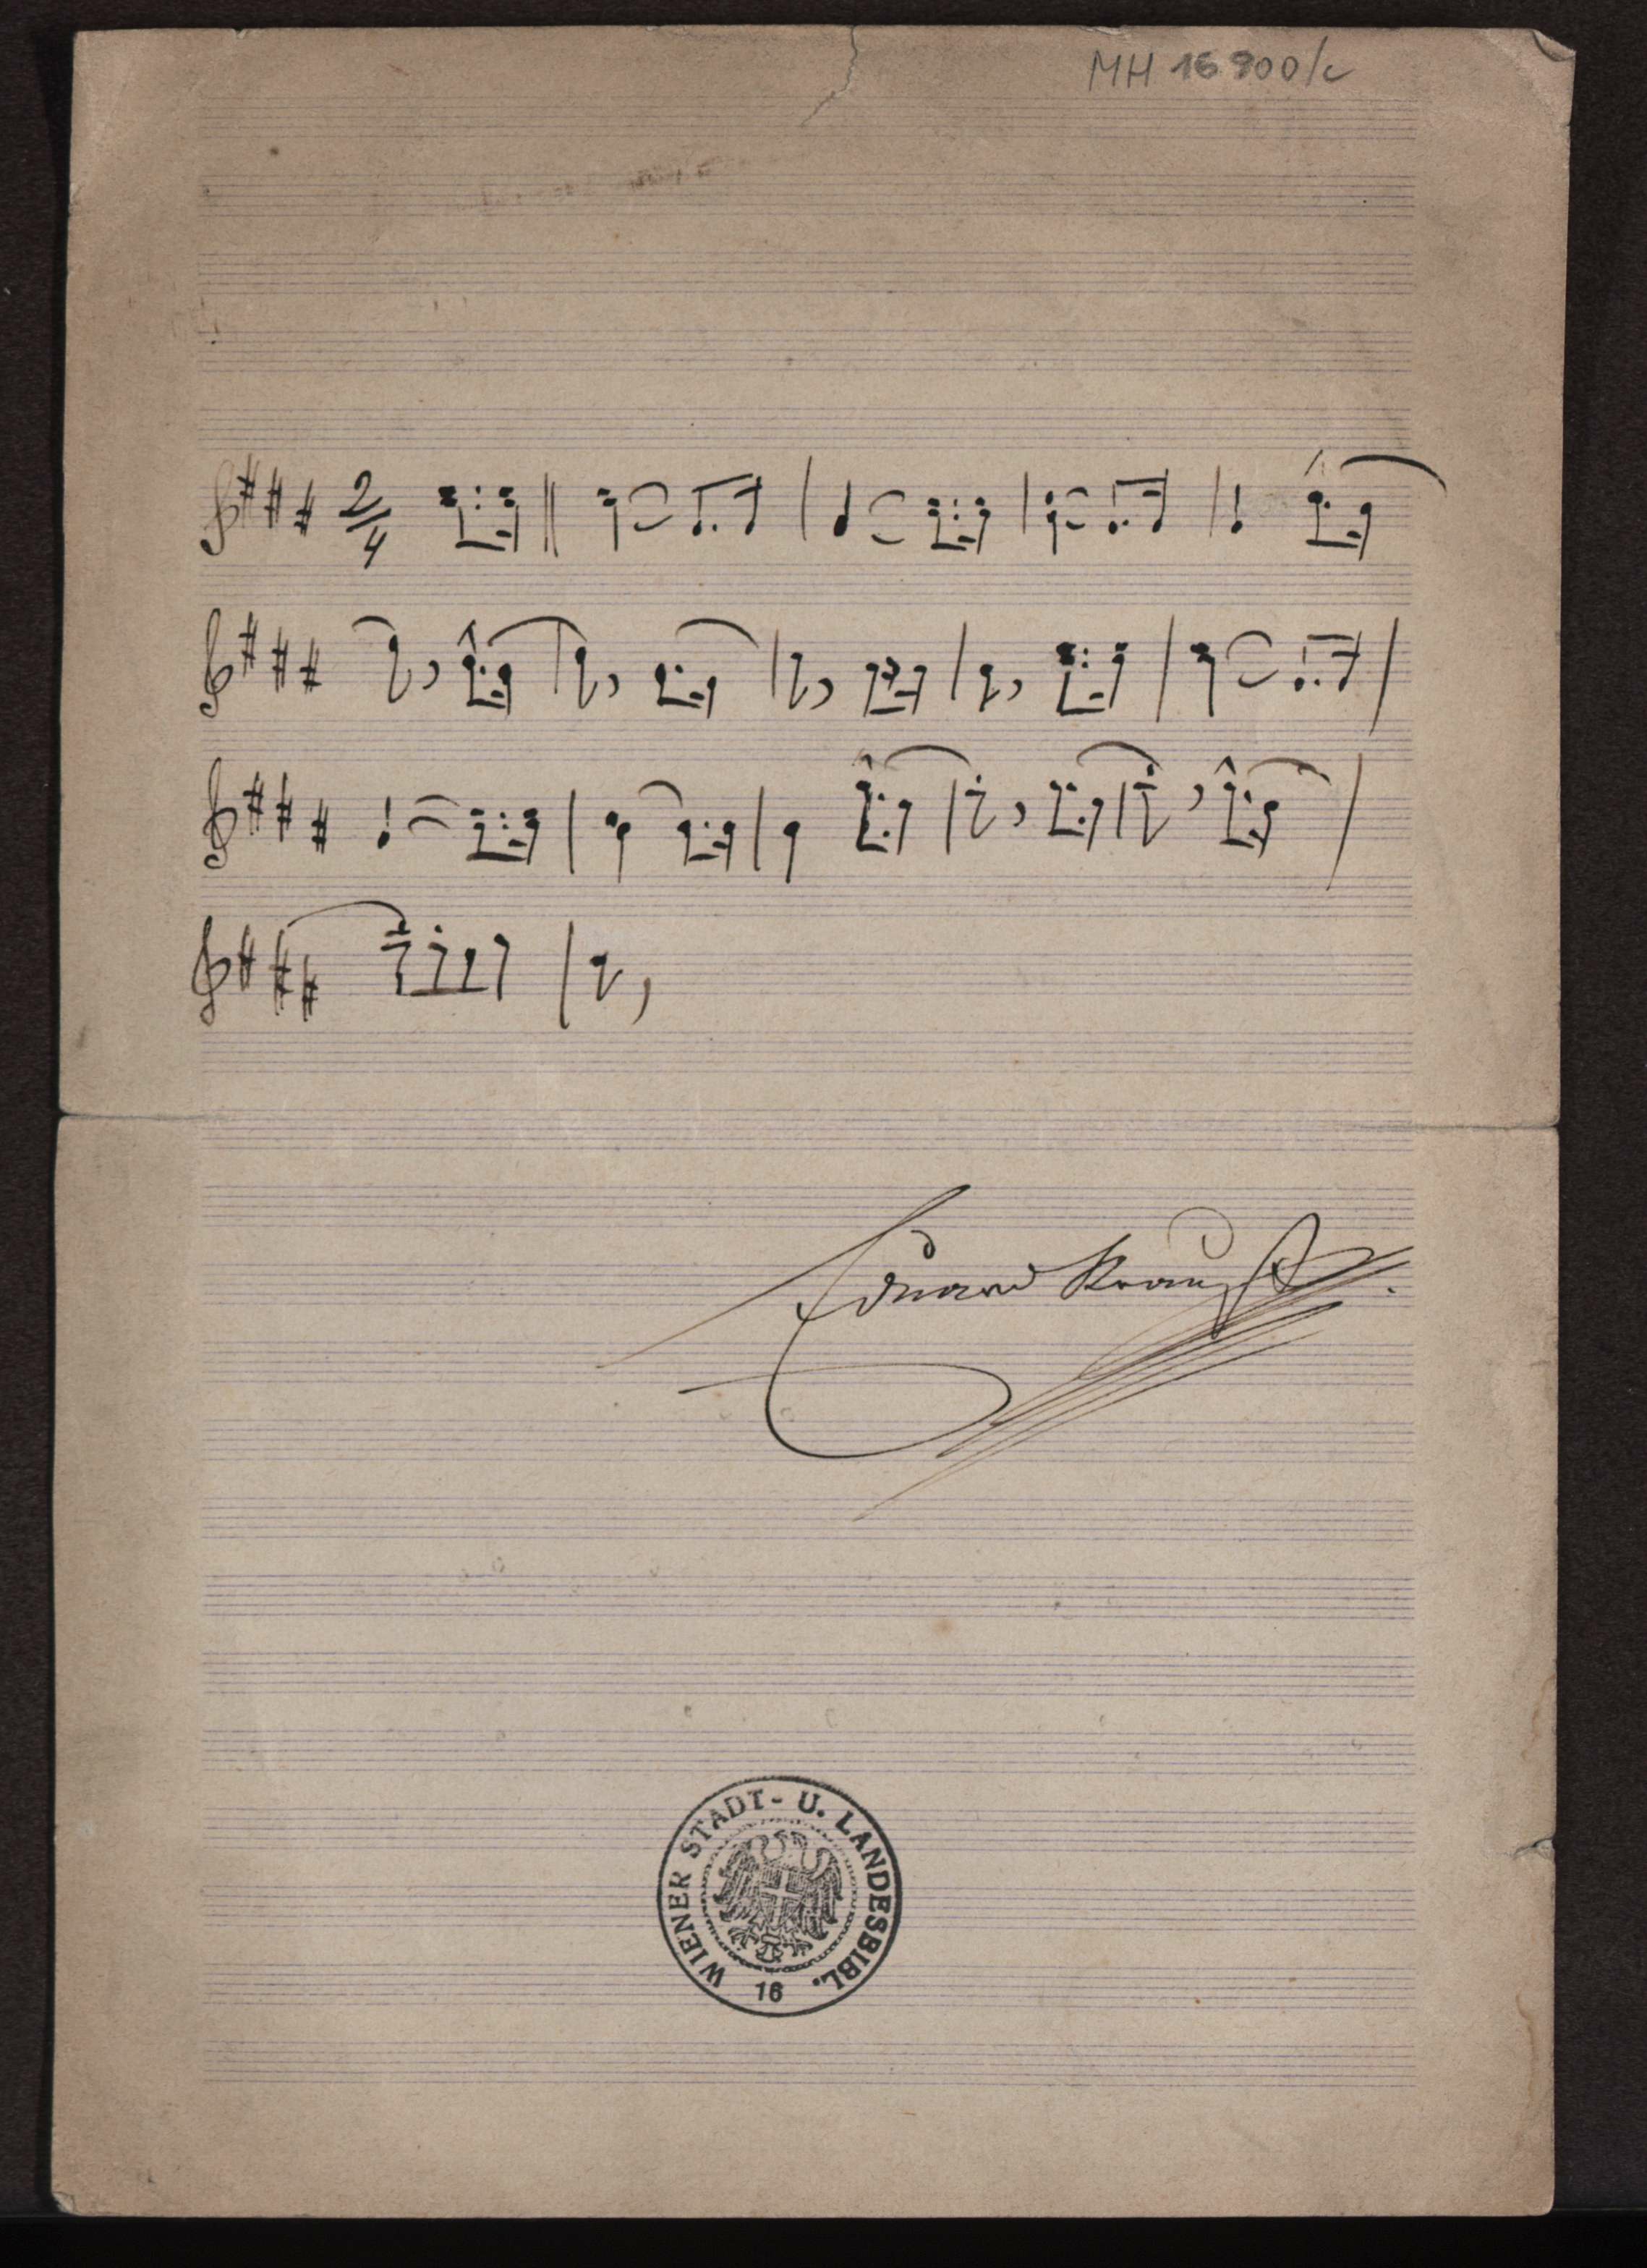 MH 16900/c
2/4
Eduard Strauß.
WIENER STADT- U. LANDESBIBL.
16